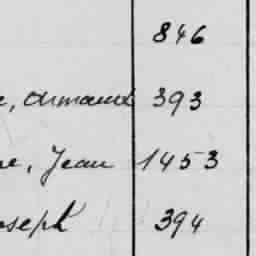 846
e, Armand 393
ne, Jean 1453
oseph 394